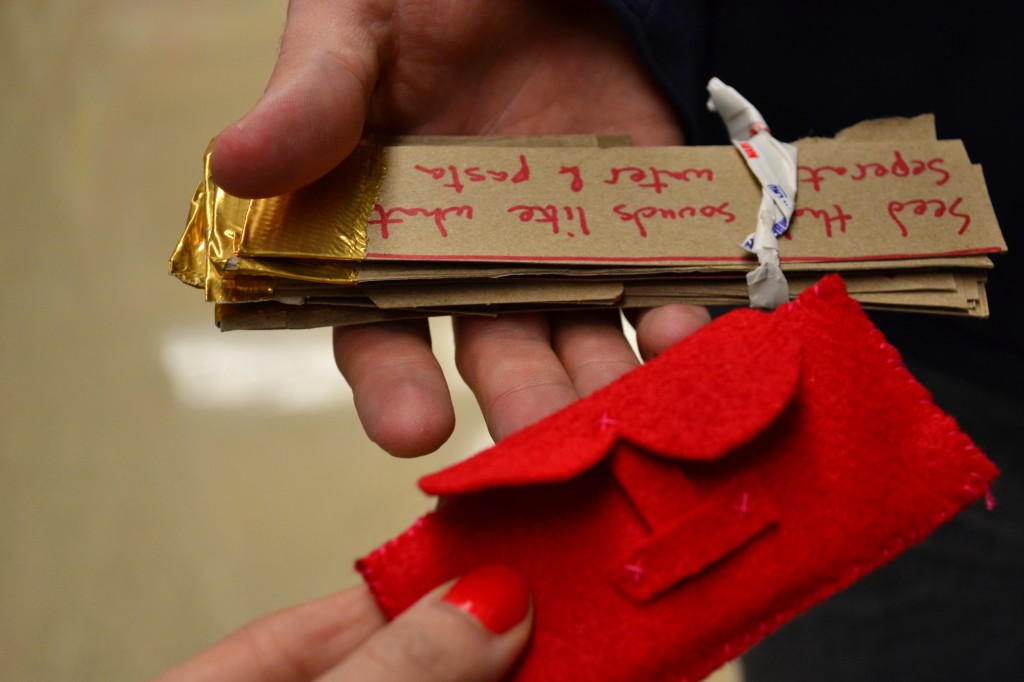 Seed tha sounds like what
Seperat water & pasta